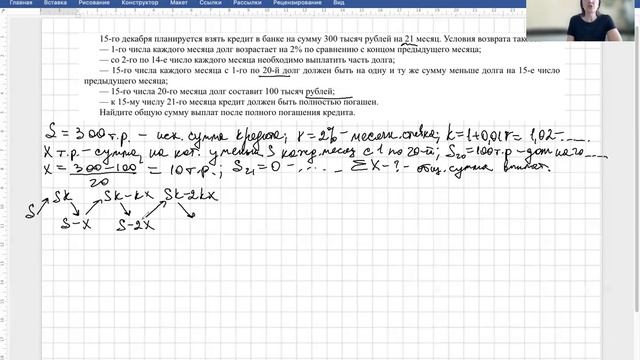 Главная Вставка Рисование Конструктор Макет Ссылки Рассылки Рецензирование Вид
15-го декабря планируется взять кредит в банке на сумму 300 тысяч рублей на 21 месяц. Условия возврата
— 1-го числа каждого месяца долг возрастает на 2% по сравнению с концом предыдущего месяца;
— со 2-го по 14-е число каждого месяца необходимо выплатить часть долга;
— 15-го числа каждого месяца с 1-го по 20-й долг должен быть на одну и ту же сумму меньше долга на 15-е число
предыдущего месяца;
— 15-го числа 20-го месяца долг составит 100 тысяч рублей;
— к 15-му числу 21-го месяца кредит должен быть полностью погашен.
Найдите общую сумму выплат после полного погашения кредита.
S = 300 т.р. – исх. сумма кредита; r = 2% – месячн. ставка; k = 1 + 0,01r = 1,02 – .....
X т.р. – сумма, на кот. уменьш S кажд. месяц с 1 по 20-й; S₂₀ = 100 т.р – долг на 20 .....
X = (300 – 100)/20 = 10 т.р.; S₂₁ = 0 – ...... ΣX – ? – общ. сумма выплат.
Sk Sk–kx Sk–2kx
S S–X S–2X